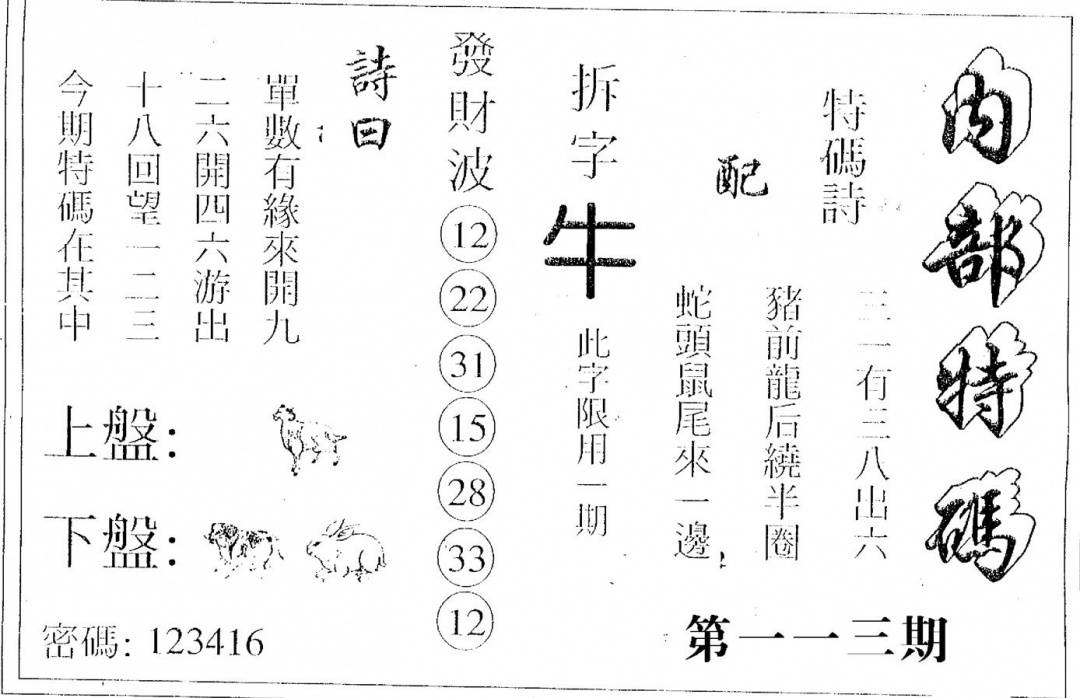 內部特碼
第一一三期
特碼詩
三一有三八出六
豬前龍后繞半圈
配
蛇頭鼠尾來一邊
拆字
牛
此字限用一期
發財波
12
22
31
15
28
33
12
詩曰
單數有緣來開九
二六開四六游出
十八回望一二三
今期特碼在其中
上盤:
下盤:
密碼: 123416